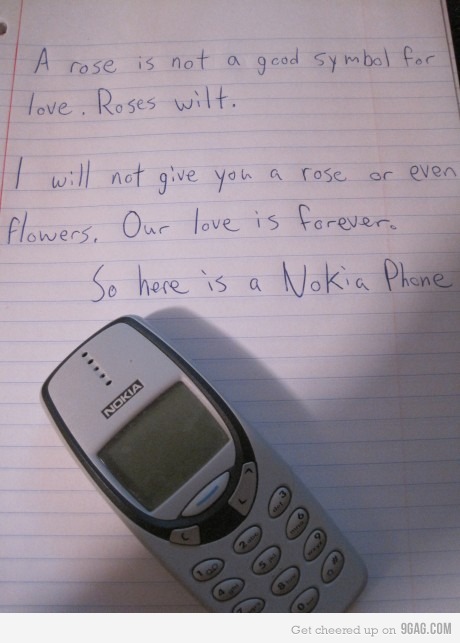 A rose is not a good symbol for
love. Roses wilt.
I will not give you a rose or even
flowers. Our love is forever.
So here is a Nokia Phone
NOKIA
C
1
2
3
4
5
6
7
8
9
0
#
Get cheered up on 9GAG.COM